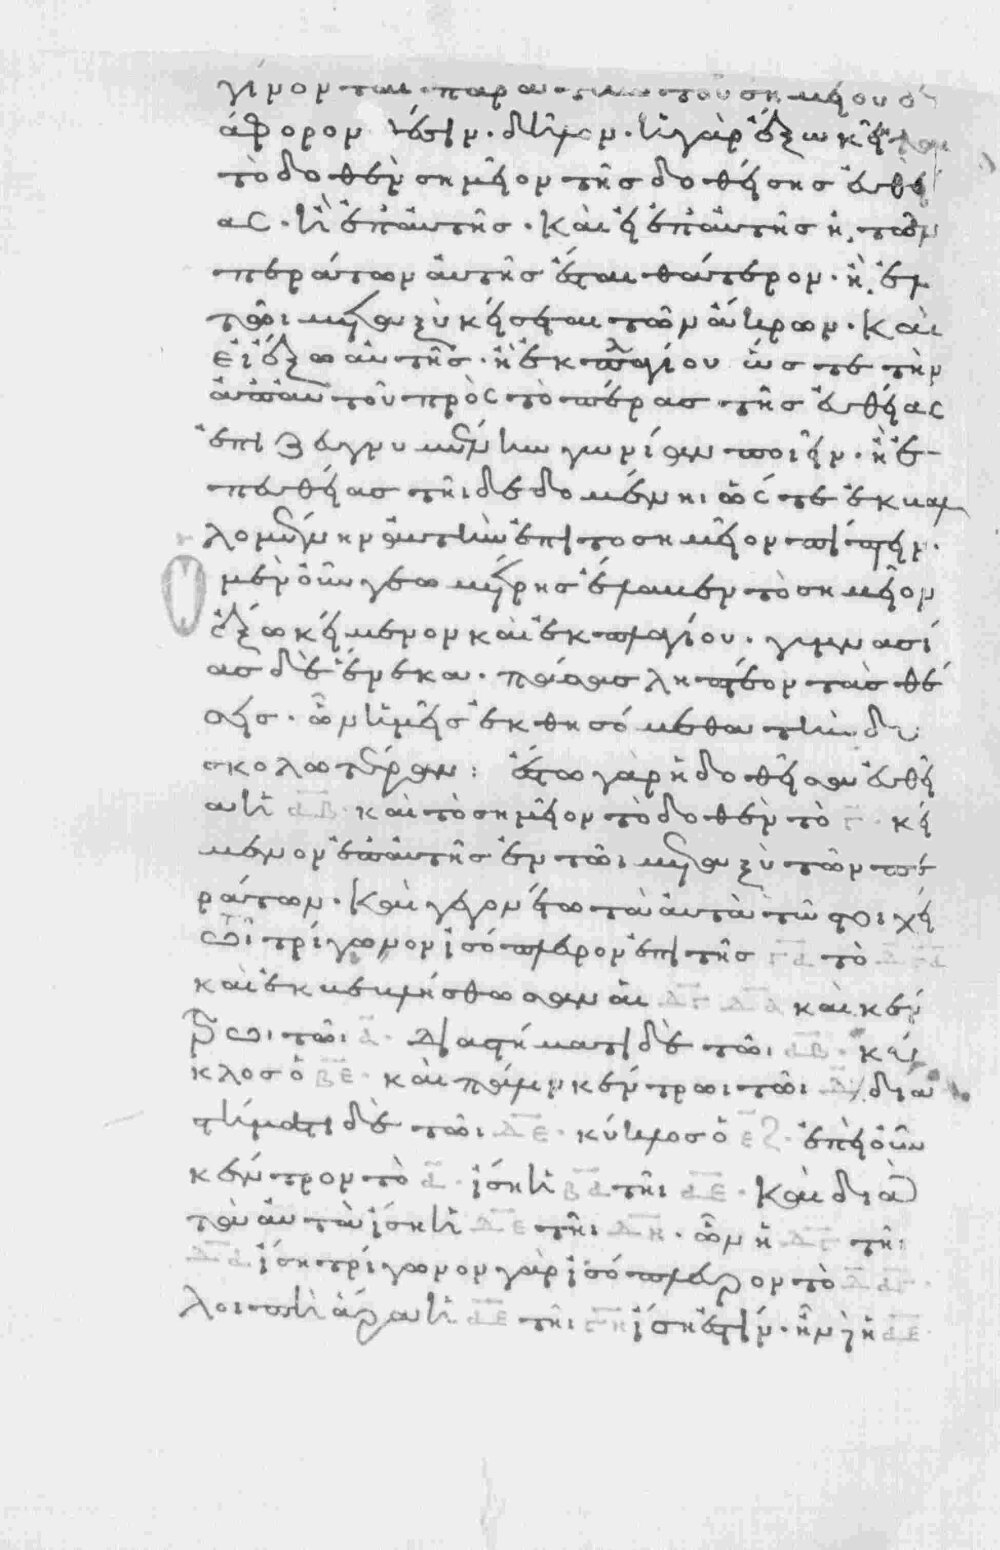 γίνονται παρὰ τὴν τοῦ σημείου δι
άφορον θέσιν. δῆλον. ἢ γὰρ ἔξω κεῖται
τὸ δοθὲν σημεῖον τῆς δοθείσης εὐθεί
ας. ἢ ἐπ' αὐτῆς. καὶ εἰ ἐπ' αὐτῆς ἢ τῶν
περάτων αὐτῆς ἔσται θάτερον. ἢ ἐν
τῶι μεταξὺ κείσεται τῶν ἄκρων. καὶ
εἰ ἔξω αὐτῆς. ἢ ἐκ πλαγίου ὥστε τὴν
ἀπ' αὐτοῦ πρὸς τὸ πέρας τῆς εὐθείας
ἐπιζευγνυμένην γωνίαν ποιεῖν. ἢ ἐ
π' εὐθείας τῆι δεδομένηι ὥστε ἐκβαλ
λομένην αὐτὴν ἐπὶ τὸ σημεῖον πίπτειν.
Ὁ μὲν οὖν γεωμέτρης ἔλαβεν τὸ σημεῖον
ἔξω κείμενον καὶ ἐκ πλαγίου. γυμνασί
ας δὲ ἕνεκα. πάσας ληπτέον τὰς θέ
σεις. ὧν ἡμεῖς ἐκθησόμεθα τὴν δυ
σκολωτέραν: ἔστω γὰρ ἡ δοθεῖσα εὐθεῖ
α ἡ ΑΒ. καὶ τὸ σημεῖον τὸ δοθὲν τὸ Γ. κεί
μενον ἐπ' αὐτῆς ἐν τῶι μεταξὺ τῶν πε
ράτων. καὶ γεγονέτω τὰ αὐτὰ τῶ στοιχει
ωτῆι τρίγωνον ἰσόπλευρον ἐπὶ τῆς ΓΑ τὸ ΔΓΑ
καὶ ἐκβεβλήσθωσαν αἱ ΔΓ ΔΑ καὶ κέν
τρωι τῶι Α. διαστήματι δὲ τῶι ΑΒ. κύ
κλος ὁ ΒΕ. καὶ πάλιν κέντρωι τῶι Δ διασ
τήματι δὲ τῶι ΔΕ. κύκλος ὁ Ε. ἐπεὶ οὖν
κέντρον τὸ Α. ἴση ἡ ΒΑ τῆι ΑΕ. καὶ διὰ
τὰ αὐτὰ ἴση ἡ ΔΕ τῆι ΔΗ. ὧν ἡ ΔΓ τῆι
ΔΑ ἴση τρίγωνον γὰρ ἰσόπλευρον τὸ ΔΑΓ.
λοιπὴ ἄρα ἡ ΑΕ τῆι ΓΗ ἴση ἐστίν. ἦν ἡ ΑΕ